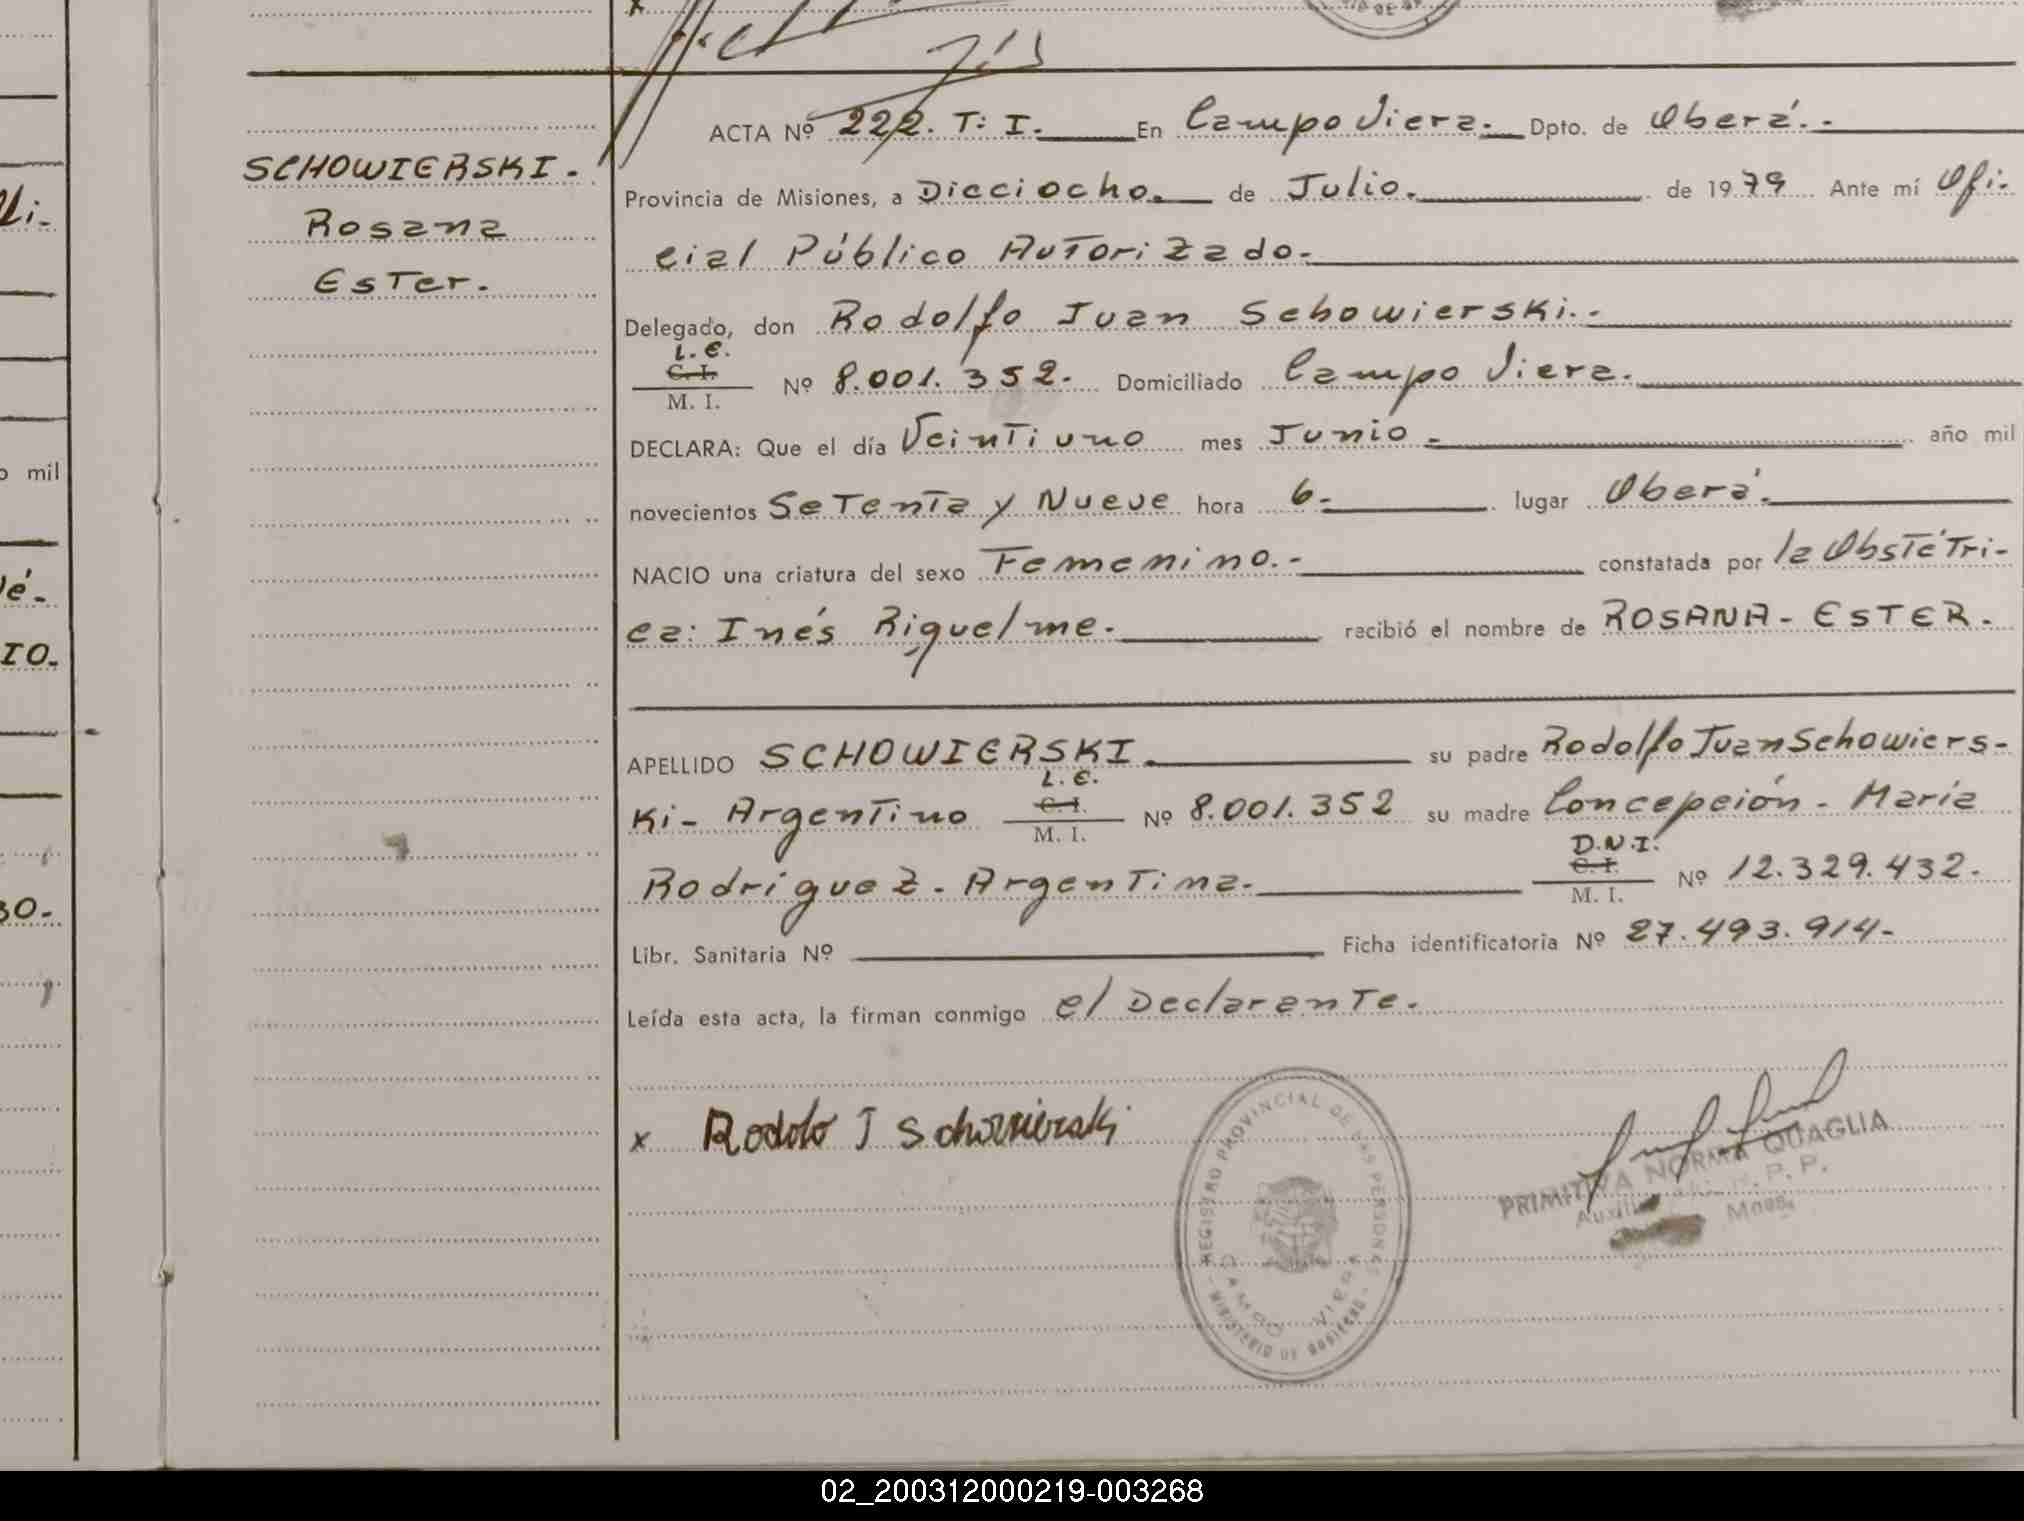 SCHOWIERSKI.
Rosana
Ester.
ACTA Nº 222. T: I. En Campo Viera. Dpto. de Oberá.
Provincia de Misiones, a Dieciocho. de Julio. de 1979 Ante mí Ofi-
cial Público Autorizado.
Delegado, don Rodolfo Juan Schowierski.
L.E.
C. I.
M. I.
Nº 8.001.352. Domiciliado Campo Viera.
DECLARA: Que el día Veintiuno mes Junio. año mil
novecientos Setenta y Nueve hora 6. lugar Oberá.
NACIO una criatura del sexo Femenino. constatada por la Obstétri-
ca: Inés Riquelme. recibió el nombre de ROSANA - ESTER.
APELLIDO SCHOWIERSKI. su padre Rodolfo Juan Schowiers-
L.E.
C. I.
M. I.
ki - Argentino Nº 8.001.352 su madre Concepción - María
D.N.I.
C. I.
M. I.
Rodríguez - Argentina. Nº 12.329.432.
Libr. Sanitaria Nº Ficha identificatoria Nº 27.493.914-
Leída esta acta, la firman conmigo el Declarante.
x Rodolfo J Schowierski
REGISTRO PROVINCIAL DE LAS PERSONAS
CAMPO VIERA
MINISTERIO DE GOBIERNO
PRIMITIVA NORMA QUAGLIA
Mnes.
o mil
IO.
02_200312000219-003268